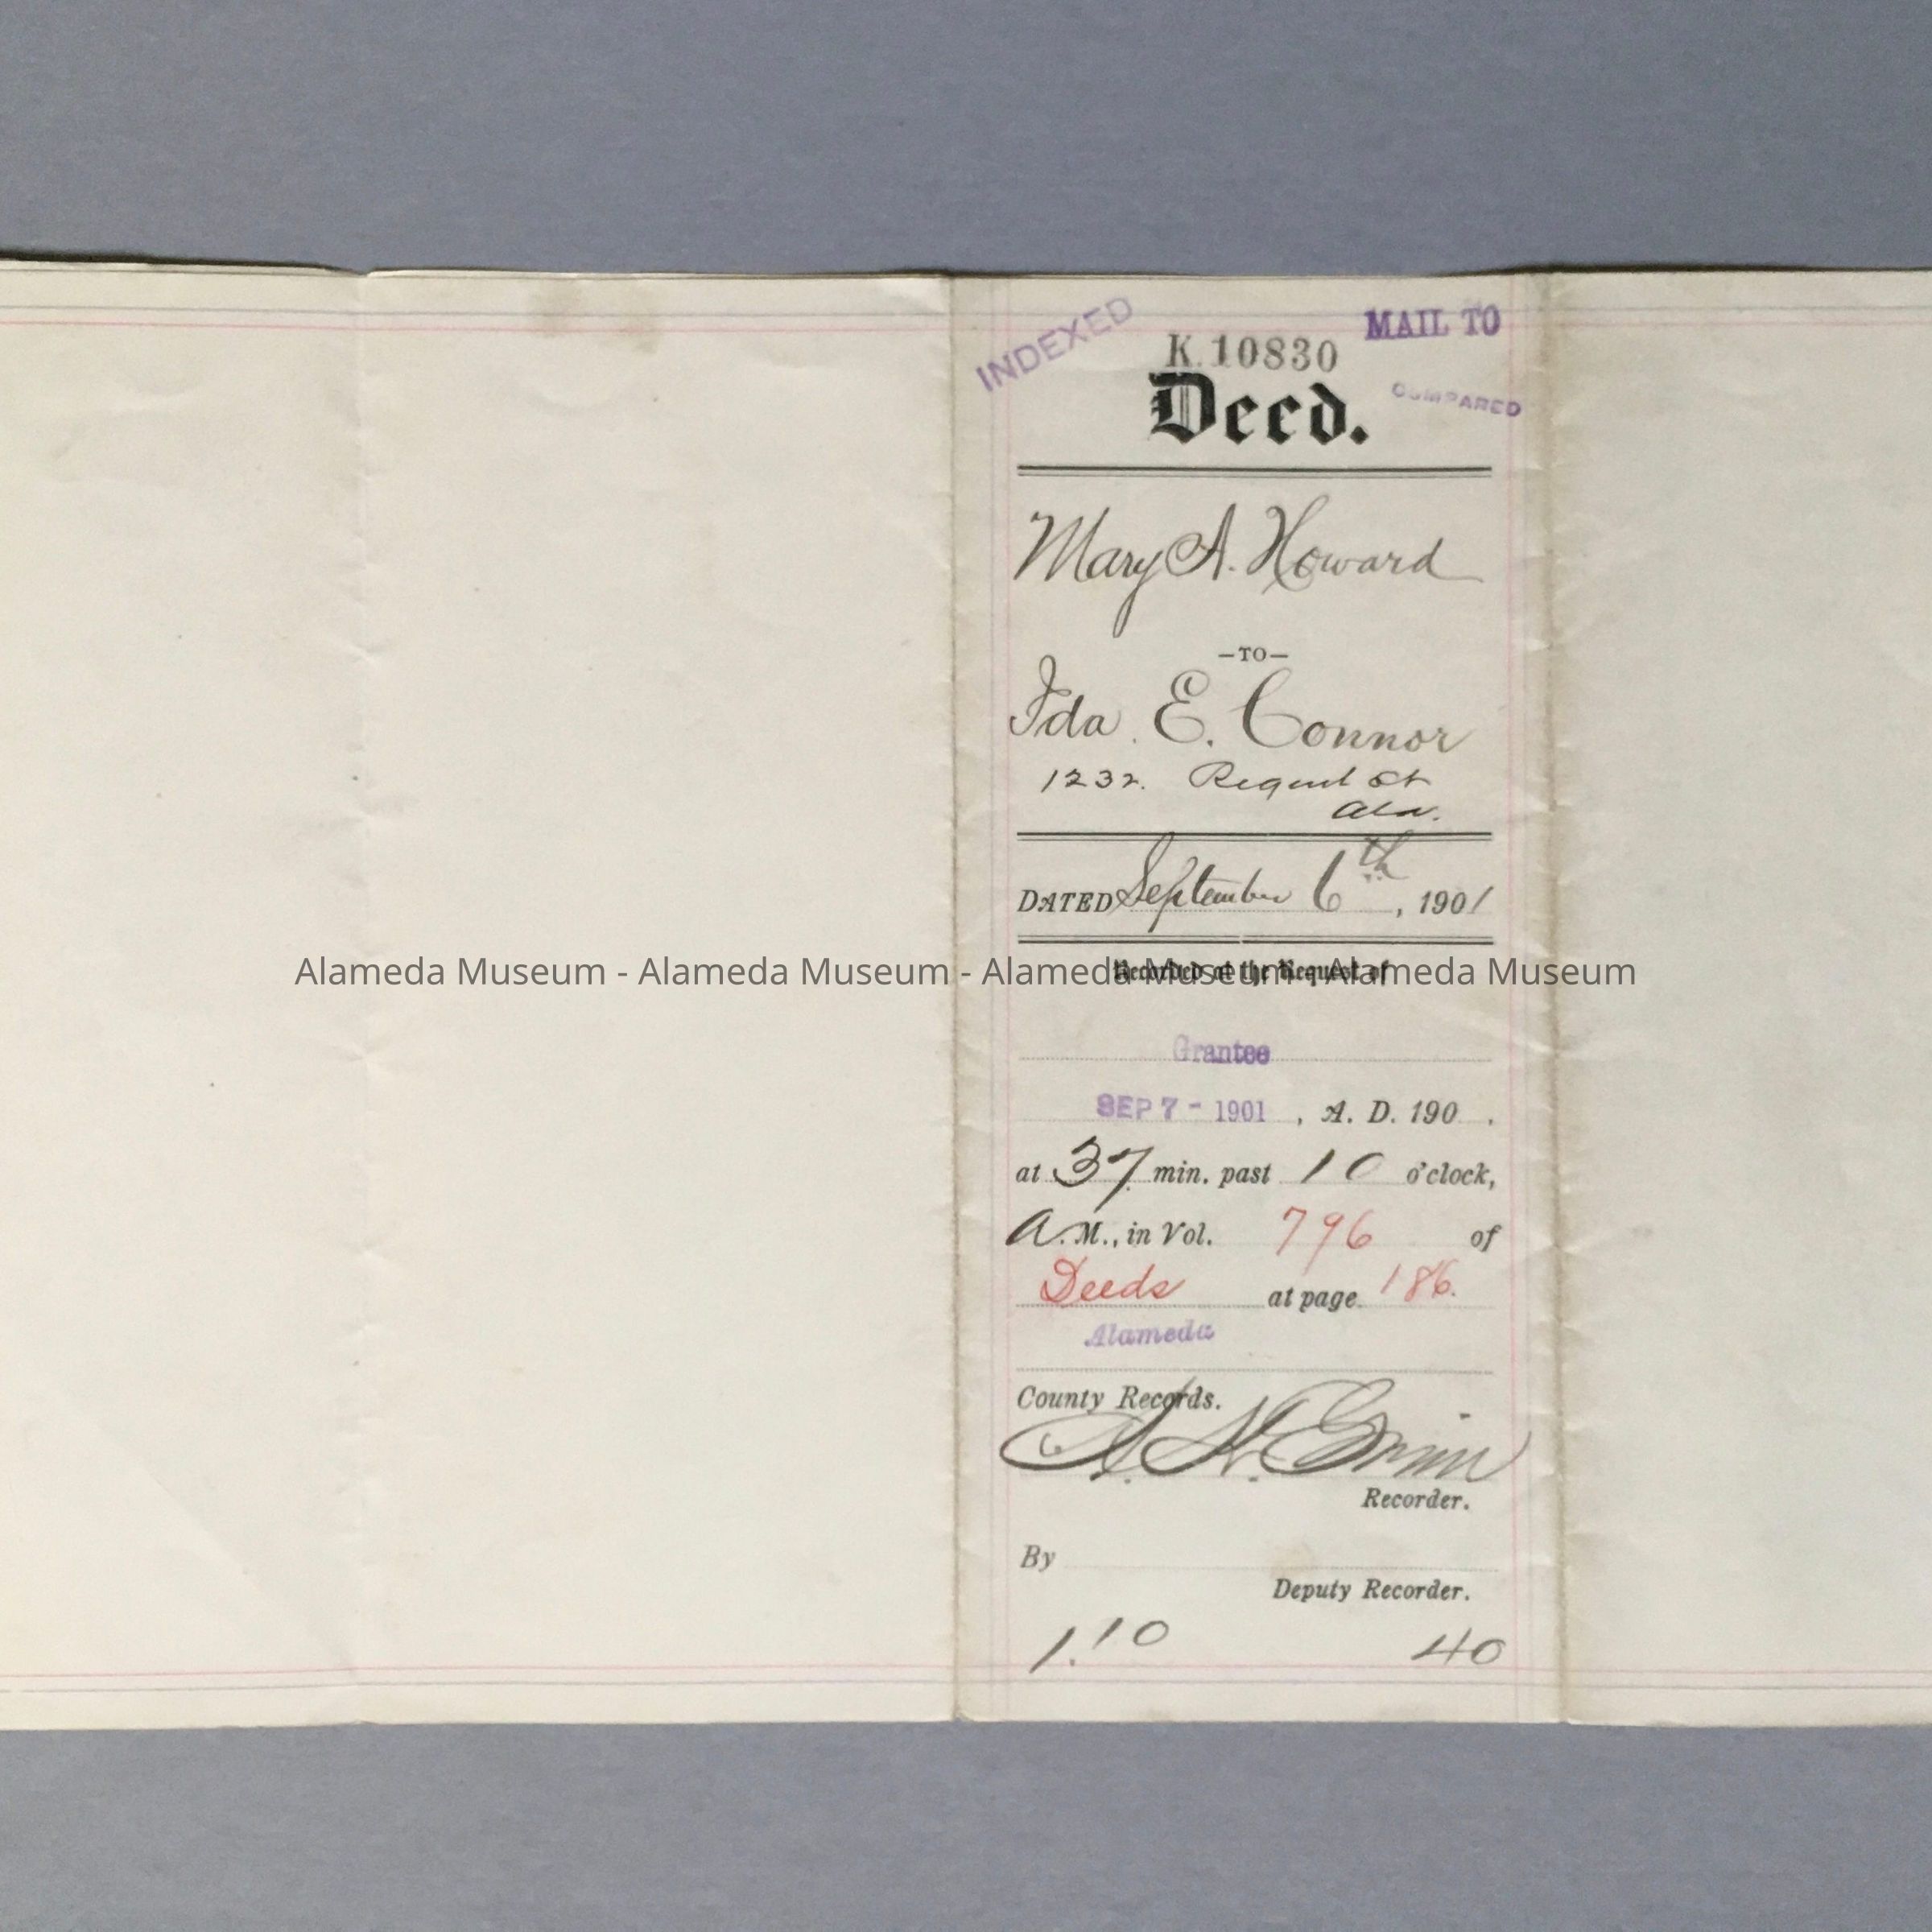 INDEXED
MAIL TO
K. 10830
COMPARED
Deed.
Mary A. Howard
—TO—
Ida E. Connor
1232. Regent St
Ala.
DATED September 6th, 1901
Alameda Museum - Alameda Museum - Alameda Museum - Alameda Museum
Recorded at the Request of
Grantee
SEP 7 - 1901 , A. D. 190 .
at 37 min. past 10 o'clock,
A. M., in Vol. 796 of
Deeds at page 186.
Alameda
County Records.
Recorder.
By
Deputy Recorder.
1.10 40